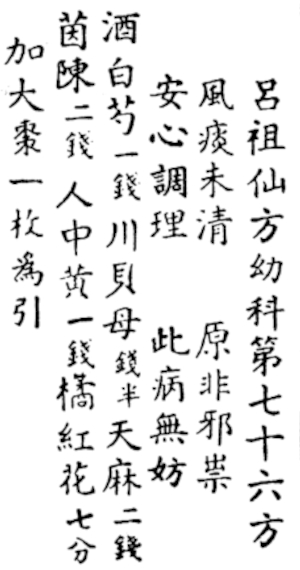 呂祖仙方幼科第七十六方
風痰未清 原非邪祟
安心調理 此病無妨
酒白芍一錢川貝母錢半天麻二錢
茵陳二錢人中黃一錢橘紅花七分
加大棗一枚為引